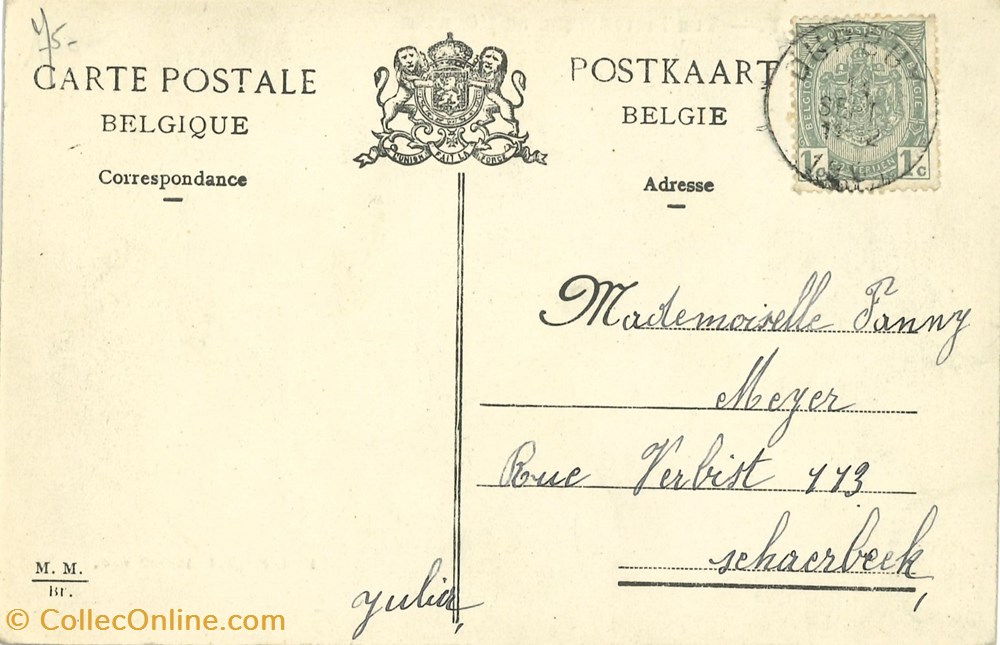 CARTE POSTALE
BELGIQUE
Correspondance
L'UNION FAIT LA FORCE
POSTKAART
BELGIE
Adresse
POSTES
BELGIQUE BELGIË
1c 1c
SEPT
Mademoiselle Fanny
Meyer
Rue Verbist 113
Schaerbeek
Julia
M. M.
Br.
© CollecOnline.com